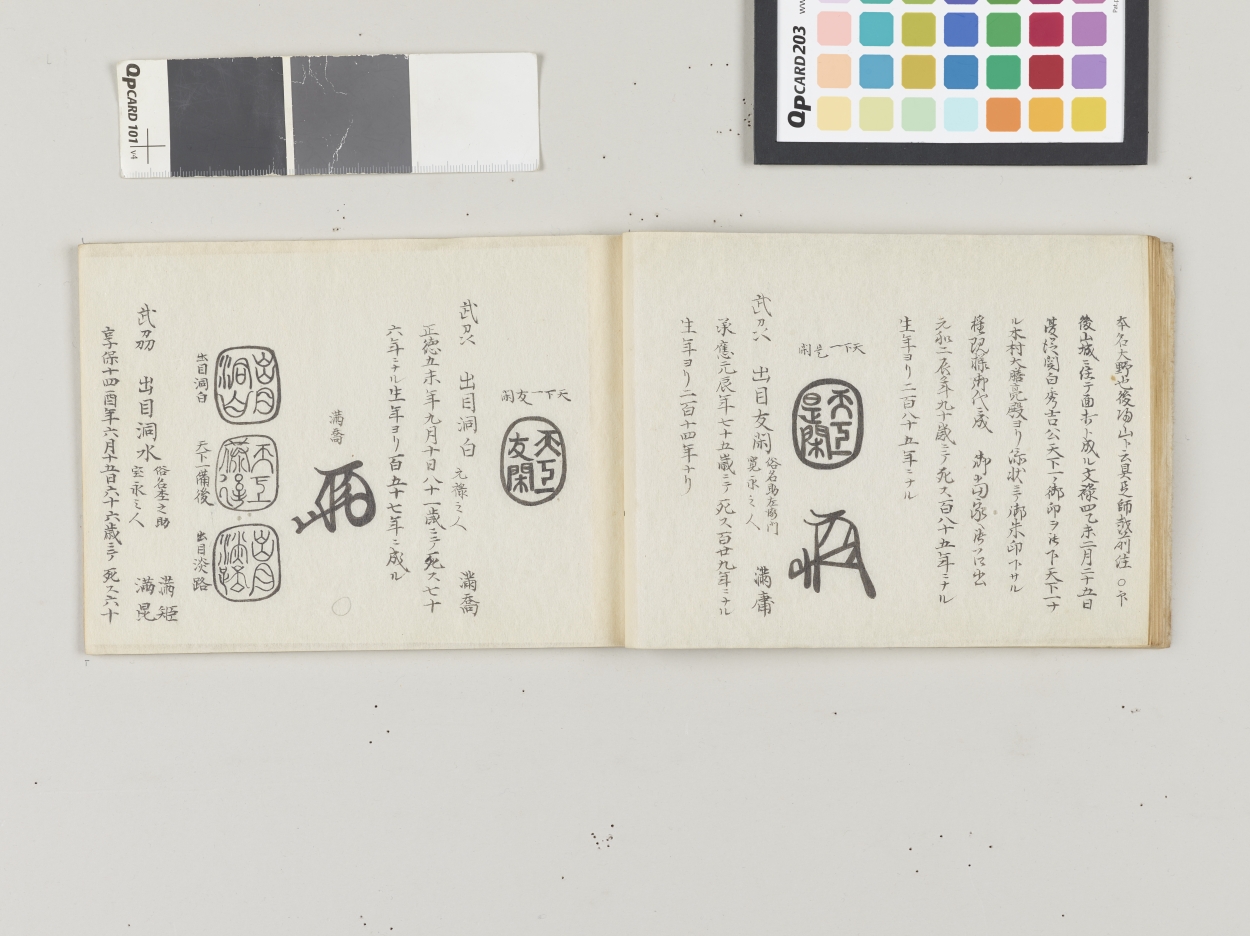 QpCARD 101 v4
QpCARD 203
後山城ニ住テ面打ト成ル文禄四乙未二月二十五日
関白秀吉公天下一ノ御印ヲ被下天下一ナ
ル木村大膳亮殿ヨリ添状ニテ御朱印下サル
権現様御代ニ成
元和二辰年九十歳ニテ死ス百八十五年ニナル
生年ヨリ二百八十五年ニナル
天下一是閑
天下一是閑
武刕 出目友閑 俗名 寛永之人 満庸
承應元辰年七十五歳ニテ死ス百廿九年ニナル
生年ヨリ二百十四年ナリ
天下一友閑
天下一友閑
武刕 出目洞白 元禄之人 満喬
正徳五未年九月十日八十一歳ニテ死ス七十
六年ニナル生年ヨリ百五十七年ニ成ル
満喬
出目洞白
出目洞白
天下一備後
天下一備後
出目淡路
出目淡路
武刕 出目洞水 俗名杢之助 宝永之人 満矩 満昆
享保十四酉年六月十五日六十六歳ニテ死ス六十